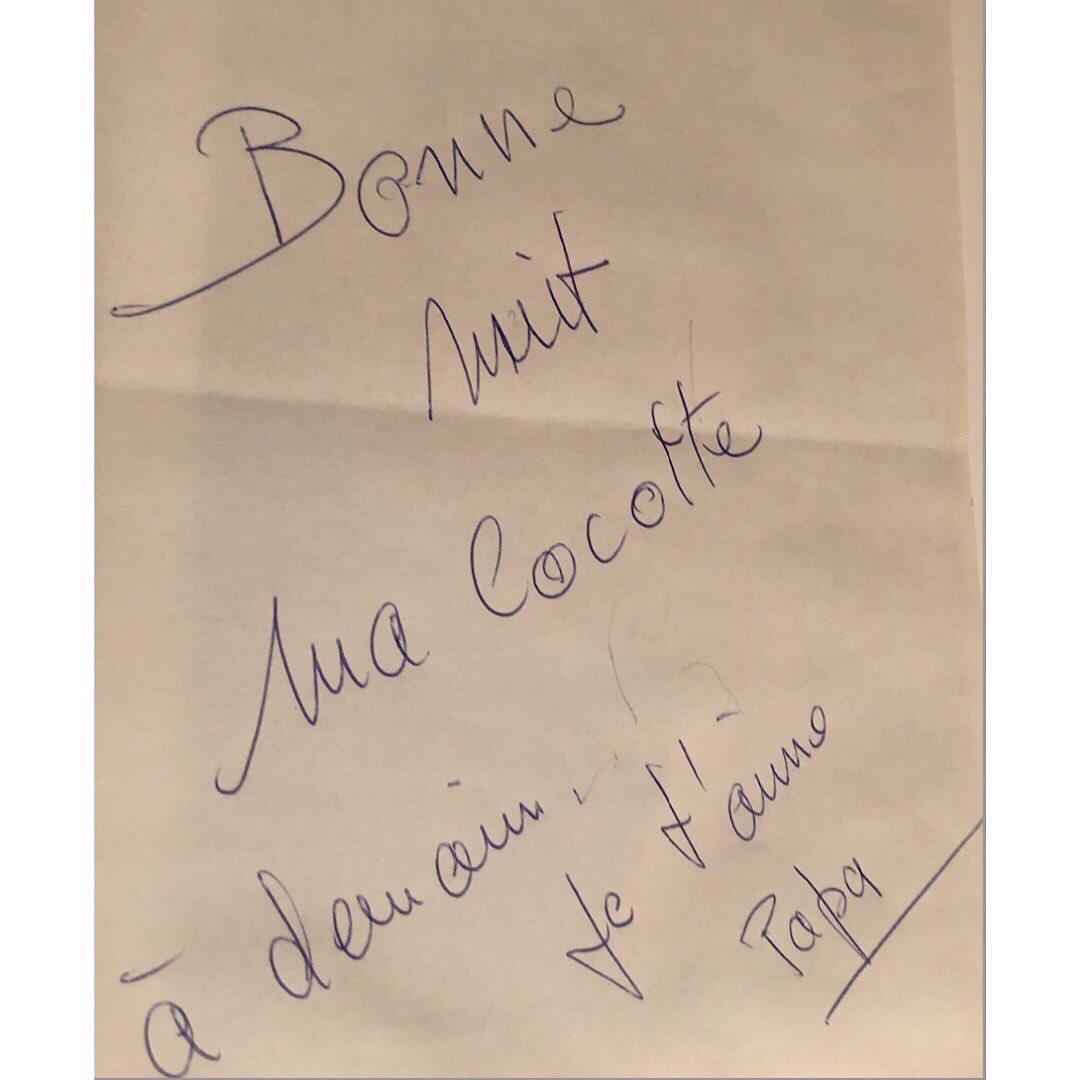 Bonne
nuit
Ma Cocotte
à demain.
Je t'aime
Papa